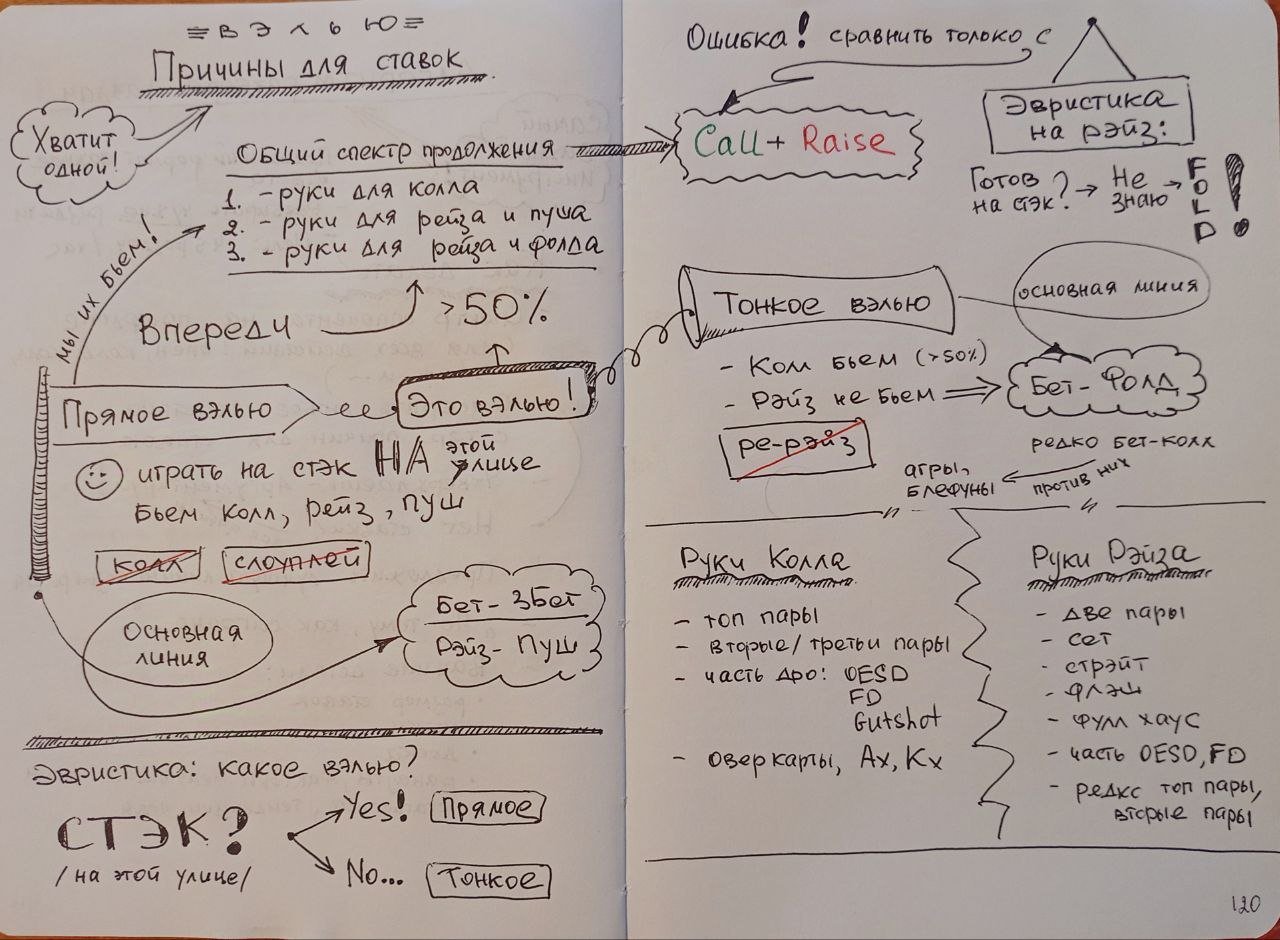 ≡ВЭЛЬЮ≡
Причины для ставок
Хватит
одной!
Общий спектр продолжения
1. - руки для колла
2. - руки для рейза и пуша
3. - руки для рейза и фолда
мы их бьем!
Впереди
>50%
Прямое вэлью
Это вэлью!
играть на стэк НА этой
улице
бьем колл, рейз, пуш
колл
слоуплей
Основная
линия
Бет-3бет
Рэйз-пуш
Эвристика: какое вэлью?
СТЭК?
/на этой улице/
Yes!
Прямое
No...
Тонкое
Ошибка! сравнить только с
Call + Raise
Эвристика
на рэйз:
Готов
на стэк?
Не
знаю
FOLD!
Тонкое вэлью
основная линия
- Колл бьем (>50%)
- Рэйз не бьем
Бет-Фолд
ре-рэйз
редко бет-колл
против них
агры,
блефуны
Руки Колла
- топ пары
- вторые/третьи пары
- часть дро: OESD
FD
Gutshot
- оверкарты, Ax, Kx
Руки Рэйза
- две пары
- сет
- стрэйт
- флэш
- фулл хаус
- часть OESD, FD
- редкс топ пары,
вторые пары
120